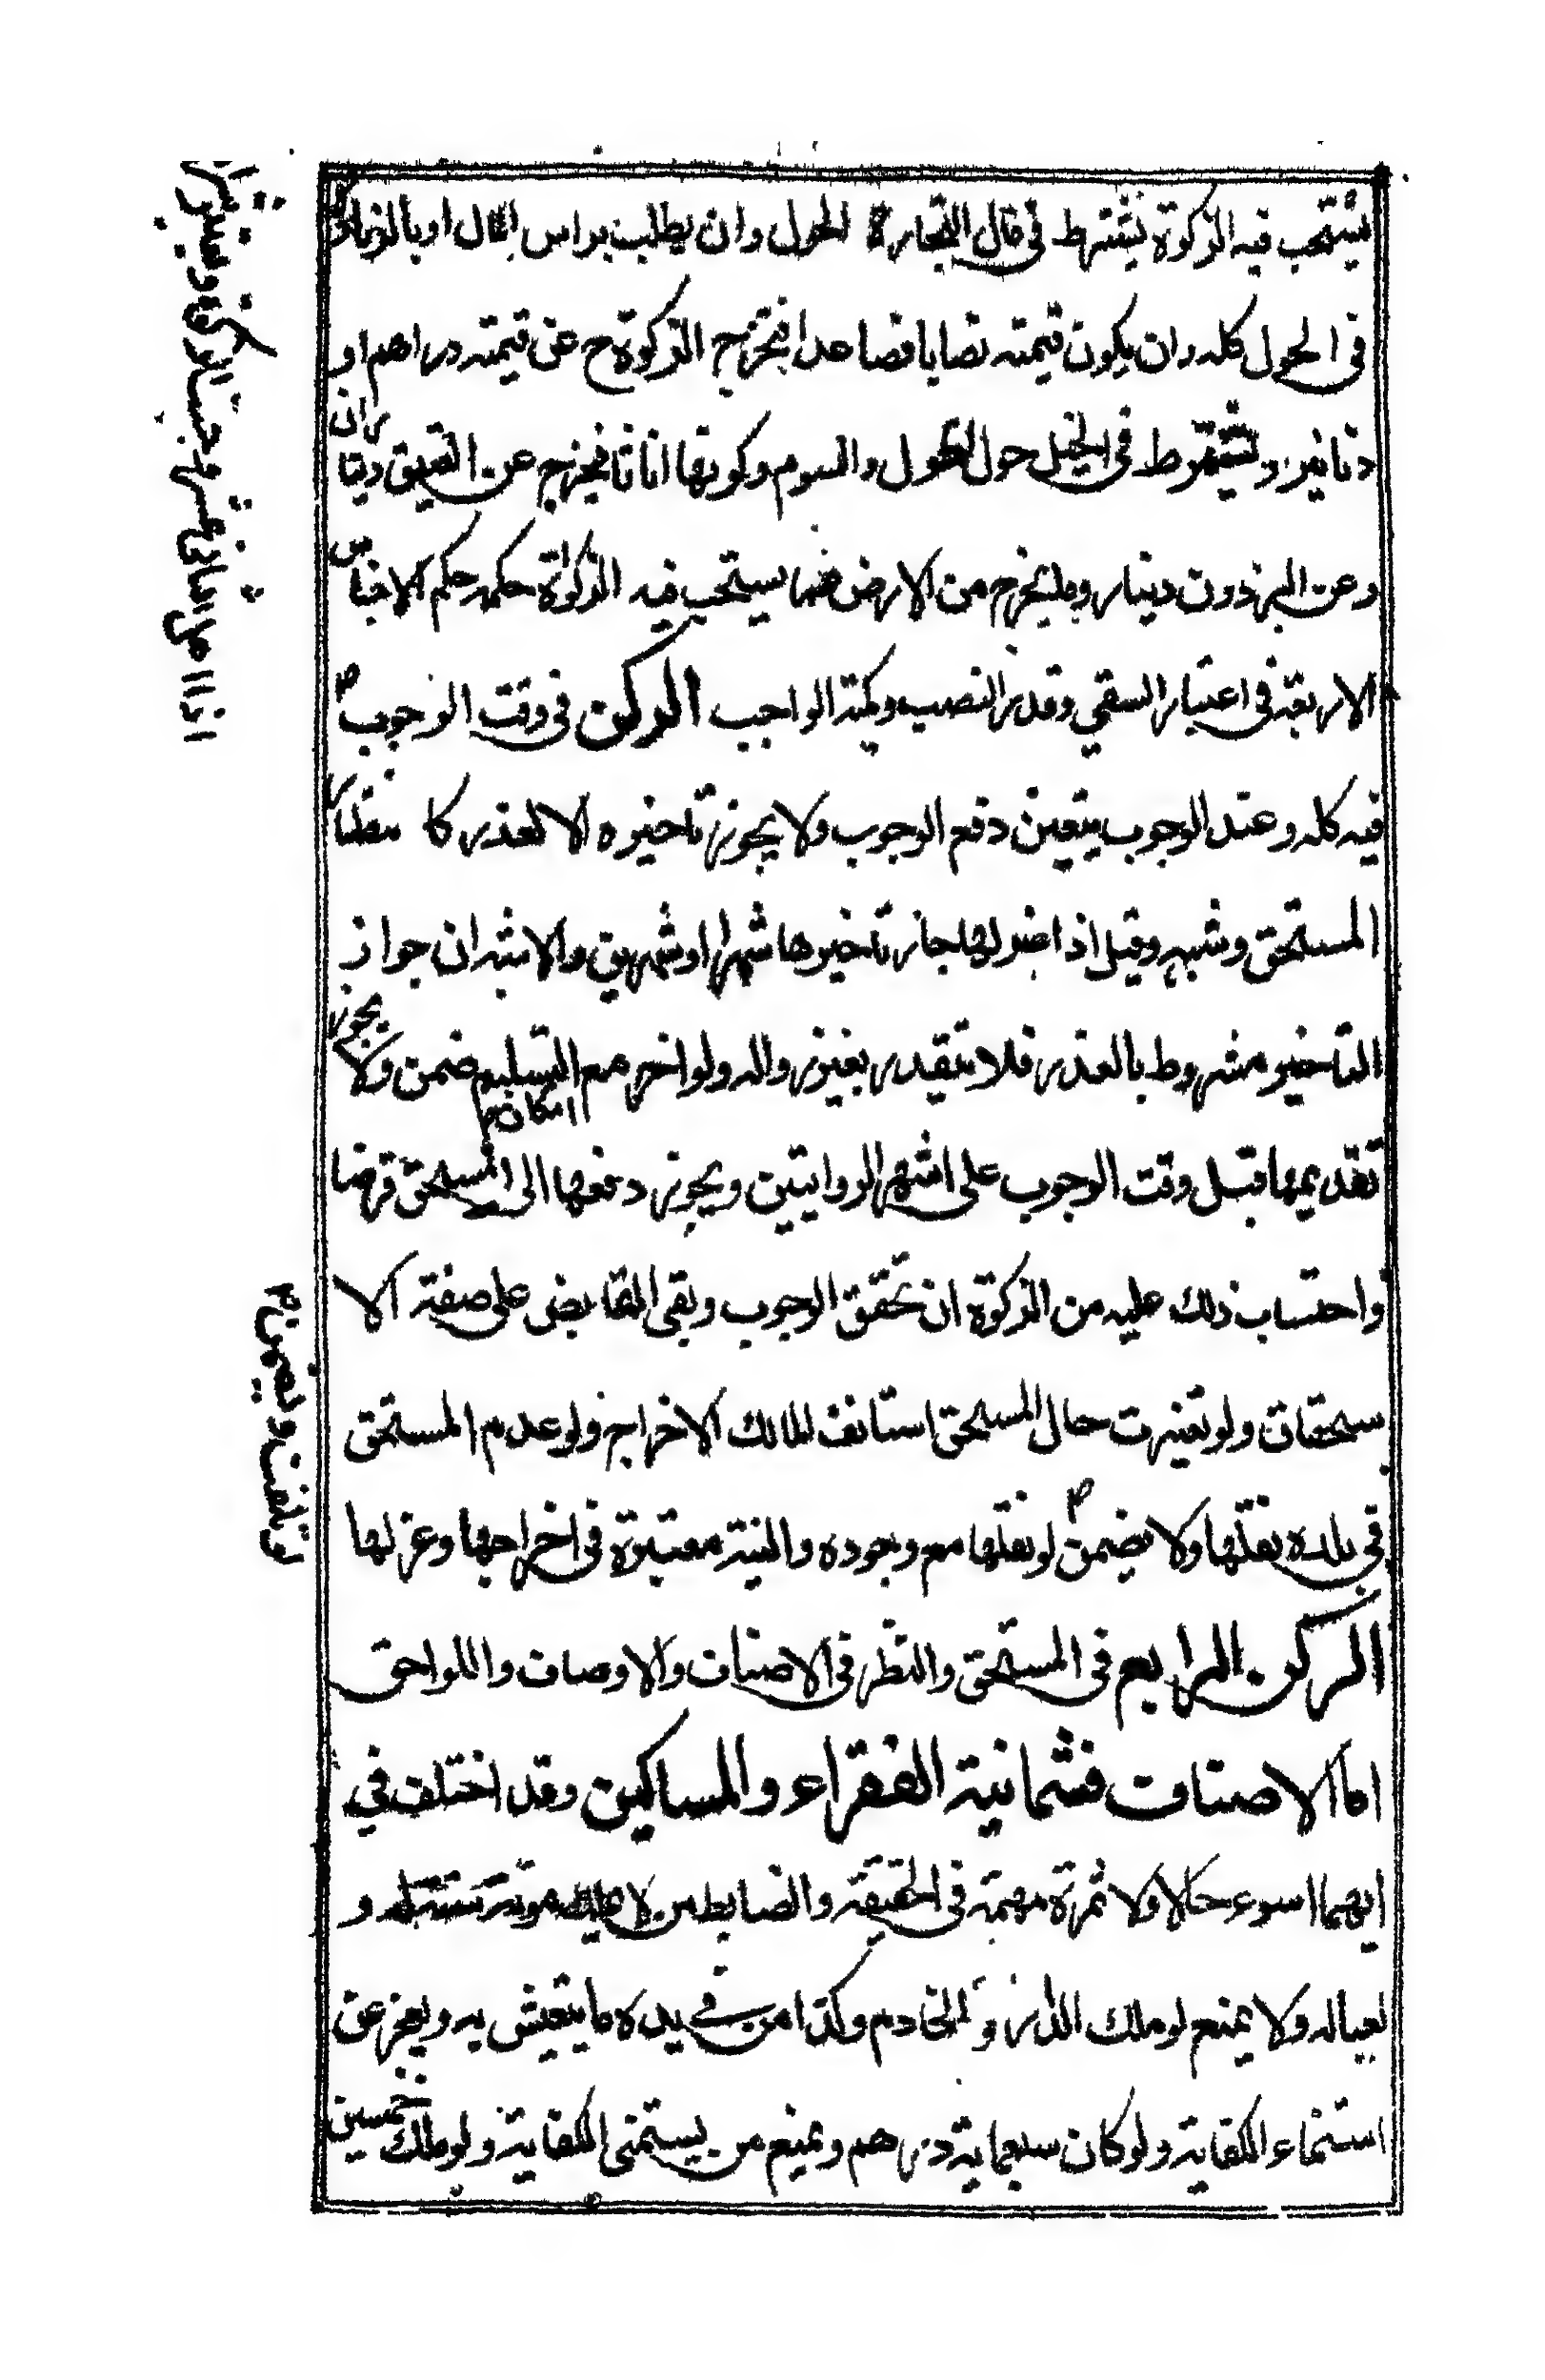 يستحب فيه الزكوة يشترط في مال التجارة الحول وان يطلب براس المال او بالزيادة
في الحول كله وان يكون قيمته نصابا فصاعدا فتخرج الزكوة ح عن قيمته دراهم او
دنانير ويشترط في الخيل حول الحول والسوم وكونها اناثا فيخرج عن العتيق دينا
ران
وعن البرذون دينار وما يخرج من الارض فما يستحب فيه الزكوة حكمه حكم الاجناس
الاربعة في اعتبار السقي وقدر النصب وكمية الواجب الركن في وقت الوجوب
فيه كله وعند الوجوب يتعين دفع الوجوب ولا يجوز تاخيره الا لعذر كا نتظار
المستحق وشبهه وقيل اذا عزلها جاز تاخيرها شهرا او شهرين والاشبه ان جواز
التاخير مشروط بالعذر فلا يتقدر بغير زواله ولو اخر مع امكان التسليم ضمن ولا يجوز
تقديمها قبل وقت الوجوب على اشهر الروايتين ويجوز دفعها الى المستحق قرضا
واحتساب ذلك عليه من الزكوة ان تحقق الوجوب وبقي القابض على صفة الا
ستحقاق ولو تغيرت حال المستحق استانف المالك الاخراج ولو عدم المستحق
في بلده نقلها ولا يضمن لو نقلها مع وجوده والنية معتبرة في اخراجها وعزلها
الركن الرابع في المستحق والنظر في الاصناف والاوصاف واللواحق
اما الاصناف فثمانية الفقراء والمساكين وقد اختلف في
ايهما اسوء حالا ولا ثمرة مهمة في الحقيقة والضابط من لا يملك مونة سنة له و
لعياله ولا يمنع لو ملك الدار والخادم وكذا من في يده ما يتعيش به ويعجز عن
استنماء الكفاية ولو كان سبعماية درهم ويمنع من يستمنى الكفاية ولو ملك خمسين
لو تلفت ويضمن